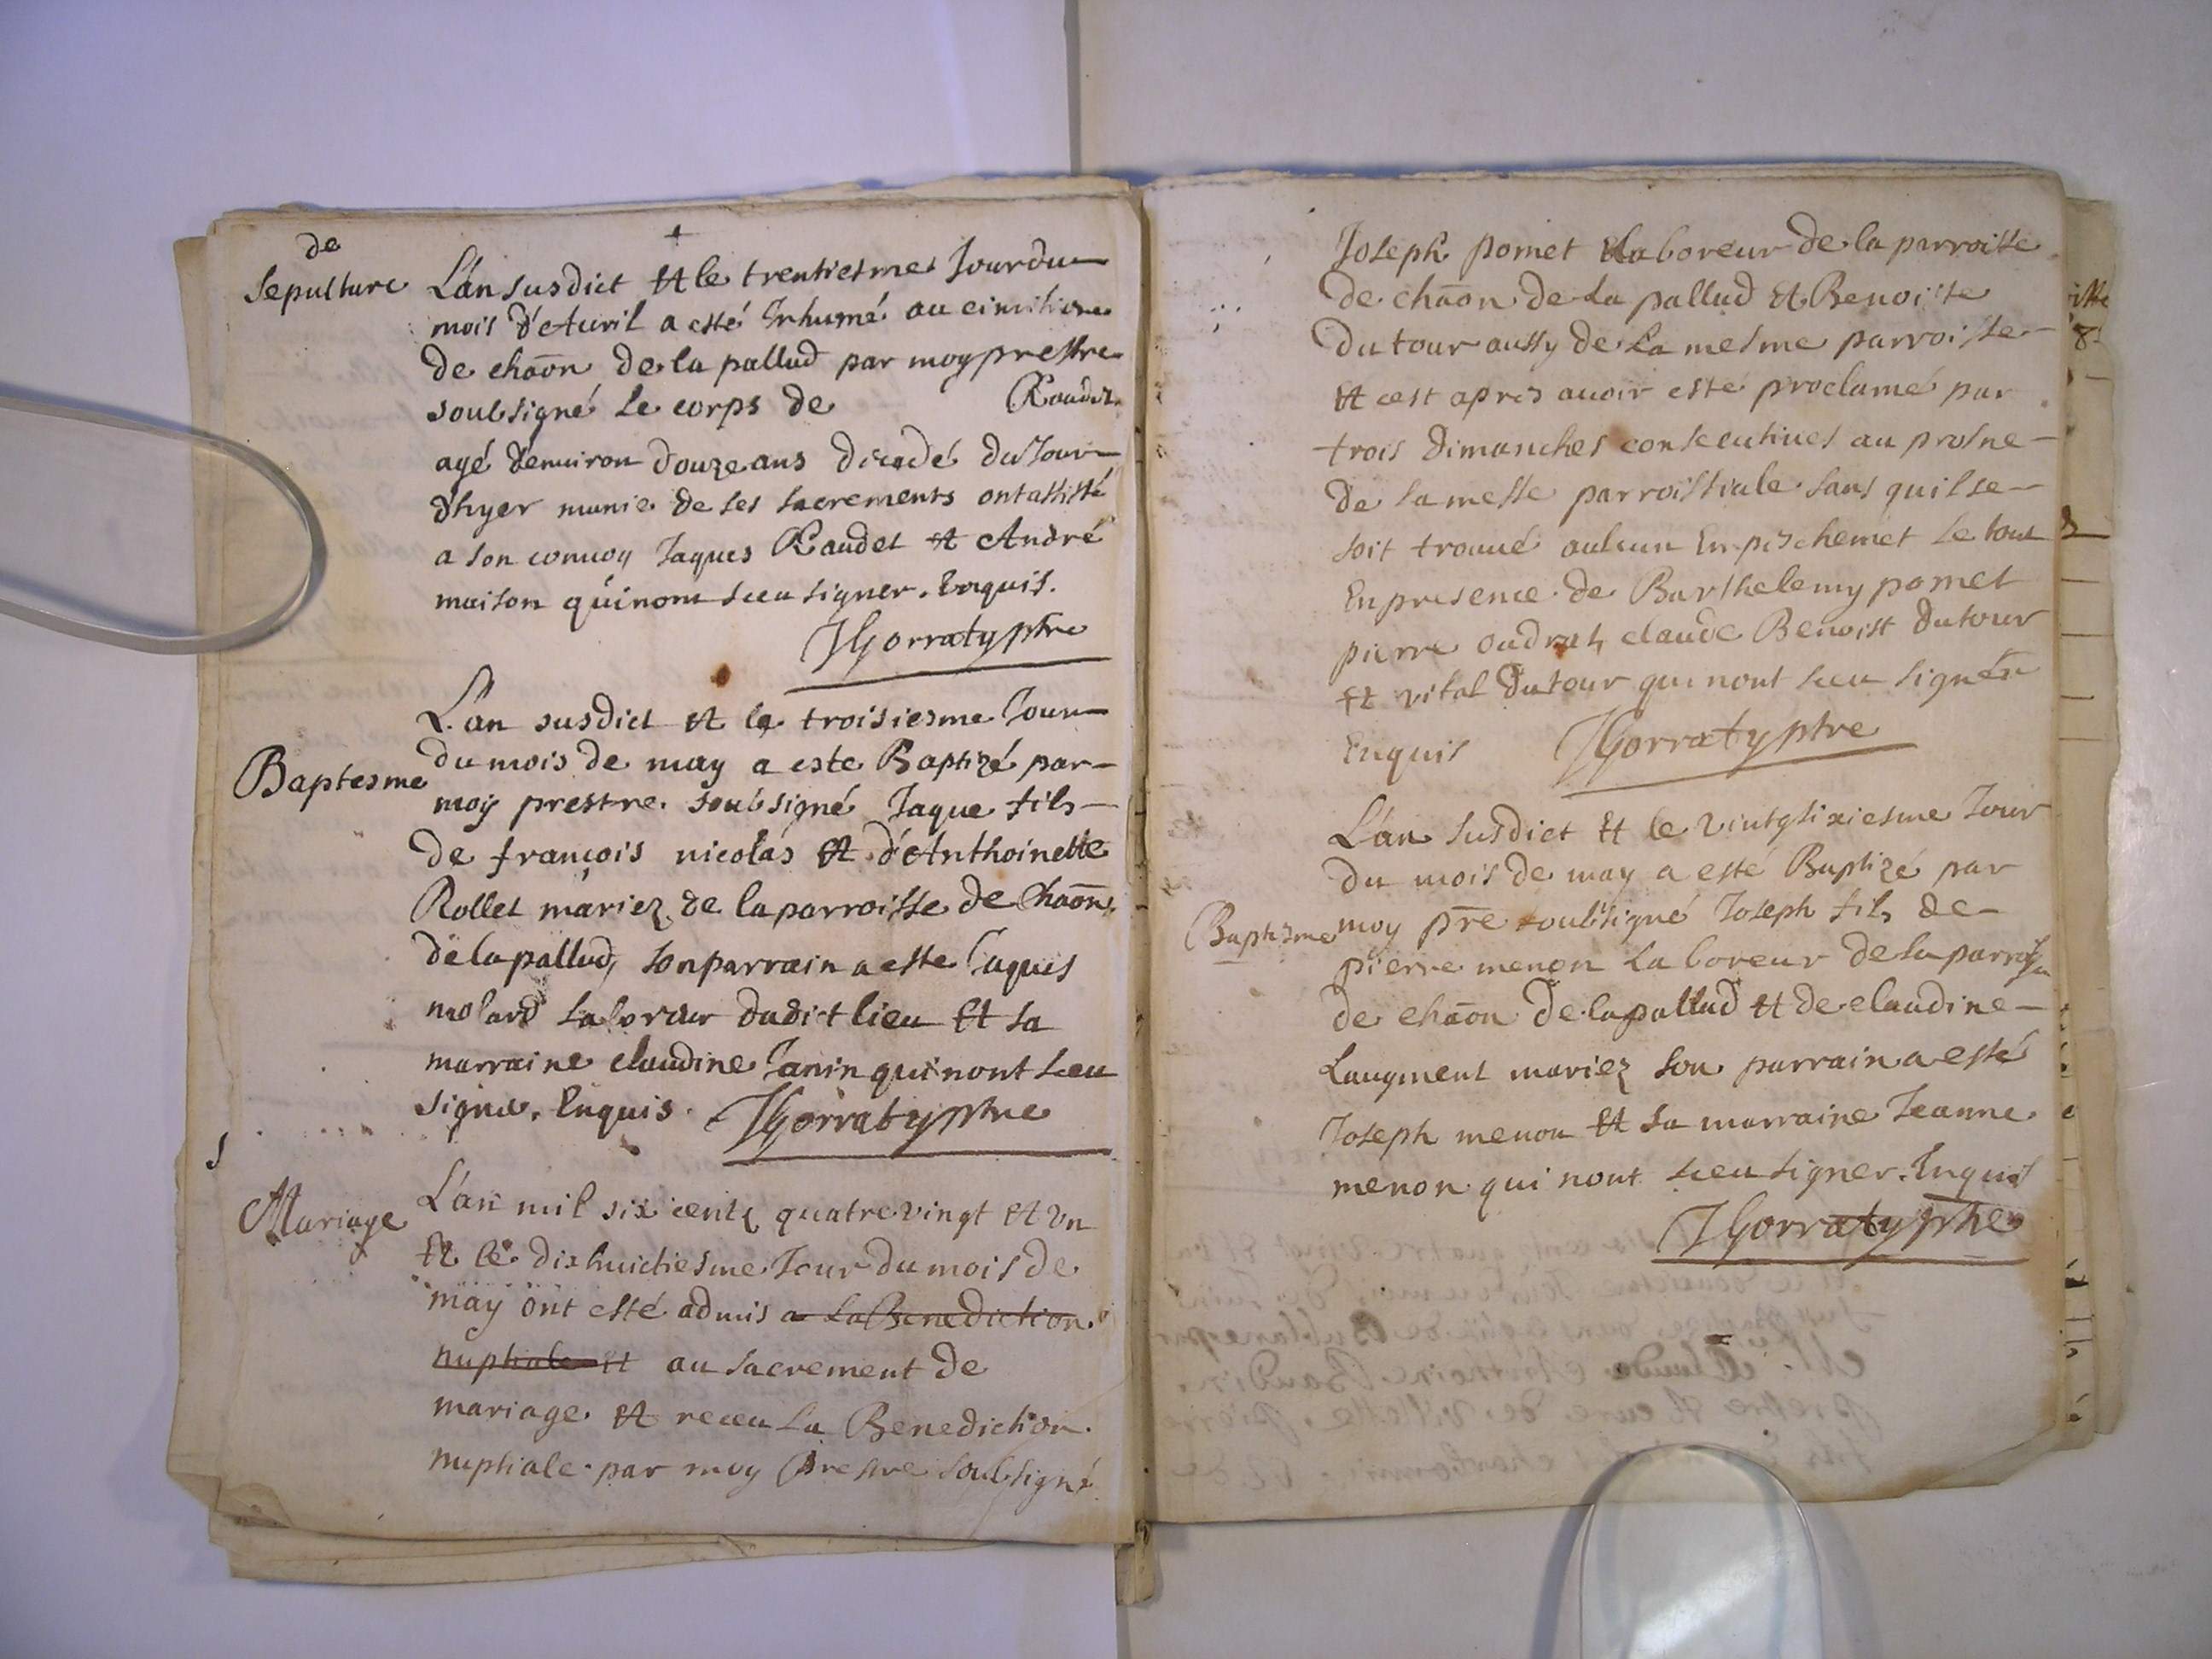 de
Sepulture
L'an susdict et le trentiesme Jour du
mois d'Auril a esté Inhumé au cimitiere
de chaōn de la pallud par moy prestre
soubsigné le corps de Raudet
agé d'enuiron douze ans decedé du Jour
d'hyer munie de ses sacrements ont assisté
a son conuoy Jaques Raudet et André
maison qui nont sceu signer. Enquis.
JGorraty ptre
Baptesme
L'an susdict et le troisiesme Jour
du mois de may a este Baptizé par
moy prestre soubsigné Jaque fils
de françois nicolas et d'Anthoinette
Rollet mariez de la parroisse de Chaōn
de la pallud, son parrain a este Jaques
molard laboreur dudit lieu et sa
marraine claudine Janin qui nont sceu
signer. Enquis. JGorraty ptre
Mariage
L'an mil six centz quatre vingt et vn
et le dixhuictiesme Jour du mois de
may ont esté admis a la Benediction
nuptiale et au sacrement de
mariage et receu la Benediction
nuptiale par moy Prestre soubsigné
Joseph pomet laboreur de la parroisse
de chaōn de la pallud et Benoiste
du tour aussy de la mesme parroisse
et cest apres auoir esté proclamé par
trois dimanches consecutiues au prosne
de la messe parroissiale sans quil se
soit trouué aulcun Empeschemet le tout
En presence de Barthelemy pomet
pierre oudrat, claude Benoist dutour
et vital dutour qui nont sceu signer
Enquis JGorraty ptre
Baptesme
L'an susdict et le vintgsixiesme Jour
du mois de may a esté Baptizé par
moy pr̄e soubsigné Joseph fils de
pierre menon laboreur de la parroisse
de chaōn de la pallud et de claudine
Laugment mariez son parrain a esté
Joseph menon et sa marraine Jeanne
menon qui nont sceu signer. Enquis
JGorraty ptre